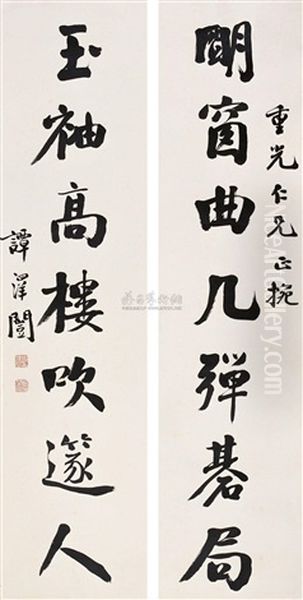 重光仁兄正捥
明窗曲几彈碁局
玉袖高樓吹篴人
譚澤闓